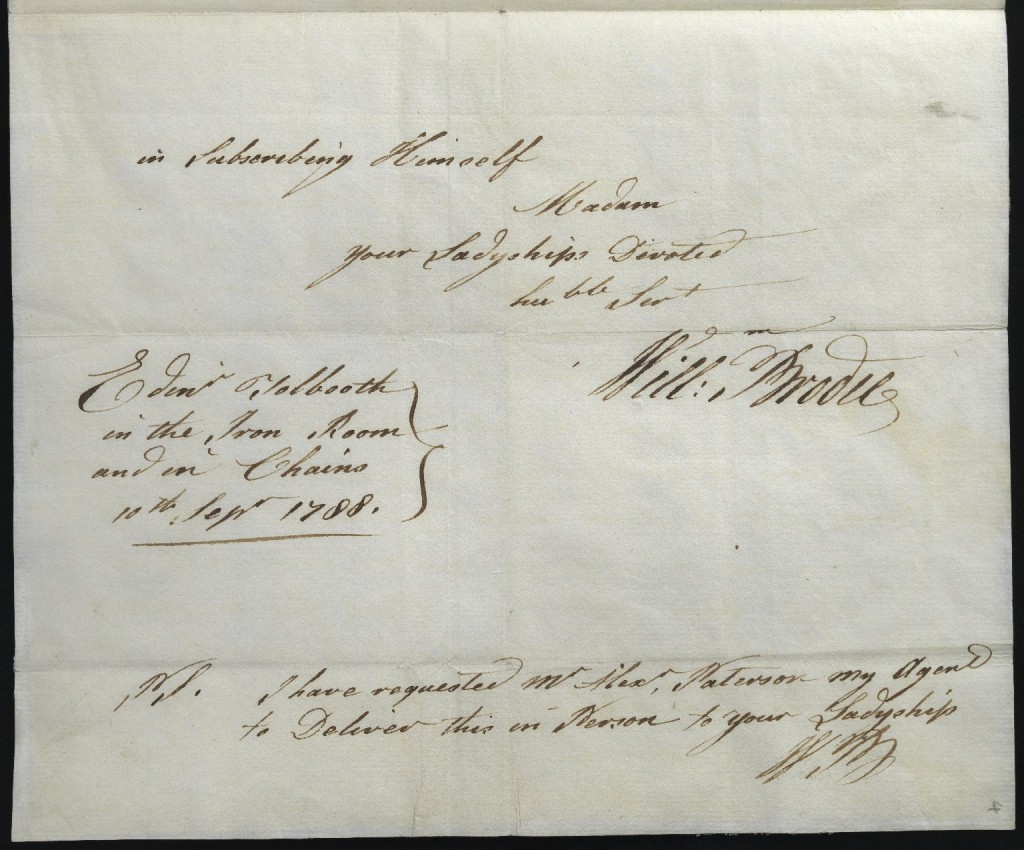 in Subscribing Himself
Madam
your Ladyships Divoted
huble Sert
Willm: Brodie
Edinr Tolbooth
in the Iron Room
and in Chains
10th Sepr 1788.
P.S. I have requested Mr Alexr. Paterson my Agent
to Deliver this in Person to your Ladyship
WB